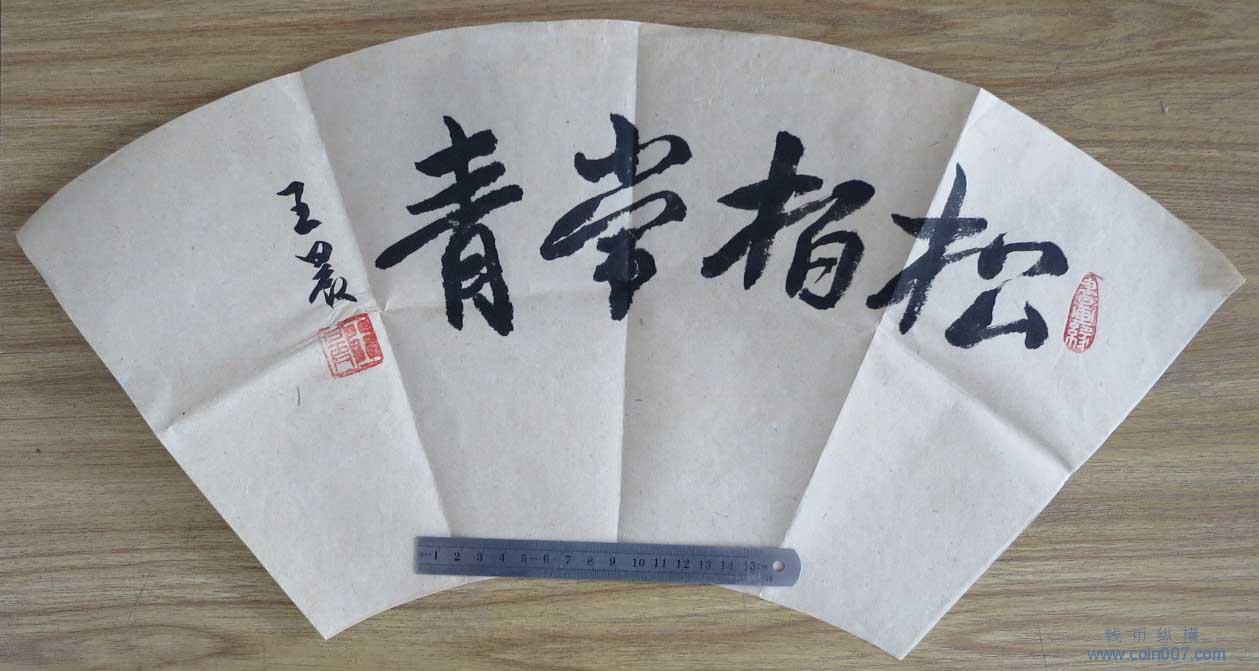 松柏常青
王晨
1 2 3 4 5 6 7 8 9 10 11 12 13 14 15cm
钱币纵横
www.coin007.com